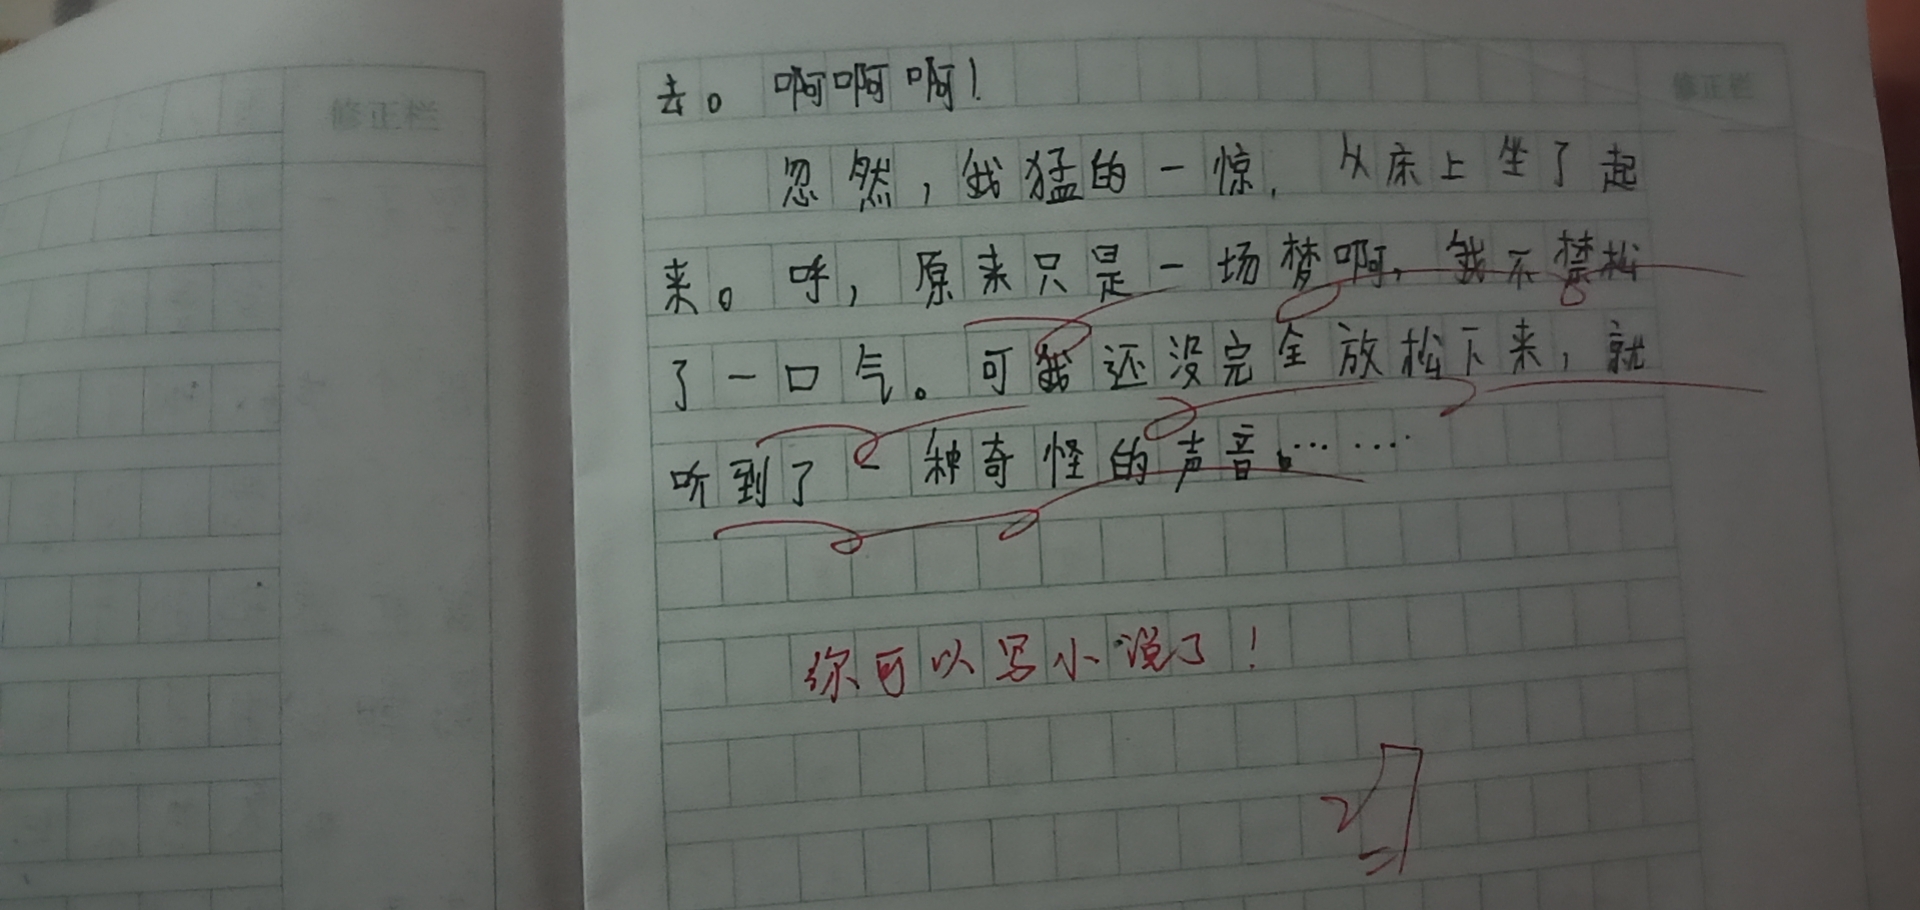 修正栏
修正栏
去。啊啊啊！
忽然，我猛的一惊，从床上坐了起
来。呼，原来只是一场梦啊，我不禁松
了一口气。可我还没完全放松下来，就
听到了一种奇怪的声音……
你可以写小说了！